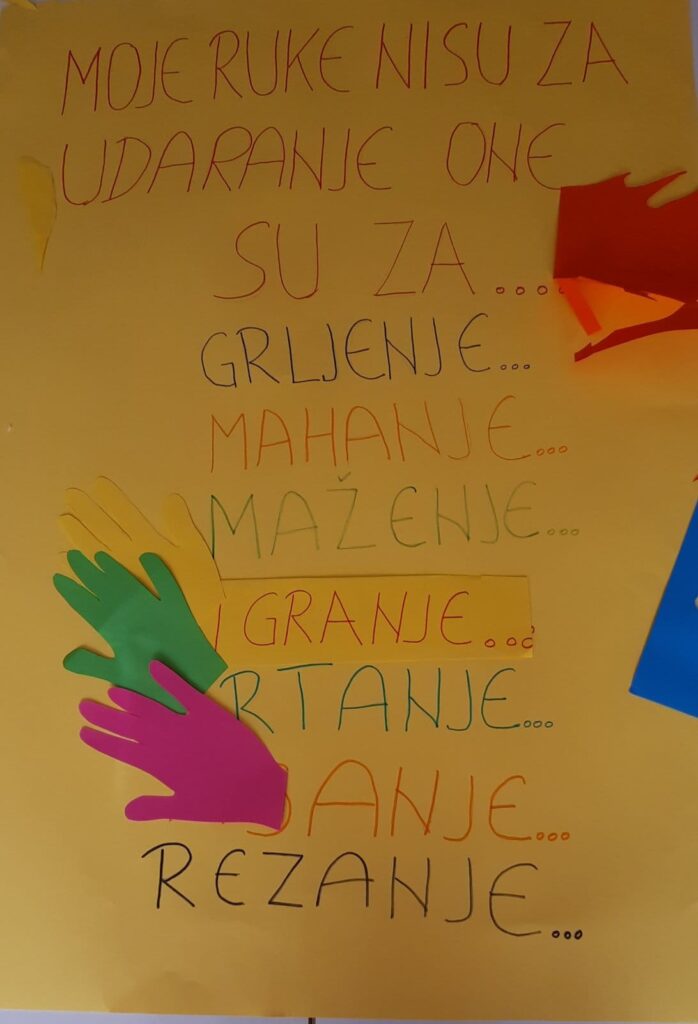 MOJE RUKE NISU ZA
UDARANJE ONE
SU ZA....
GRLJENJE...
MAHANJE...
MAŽENJE...
IGRANJE...
RTANJE...
REZANJE...